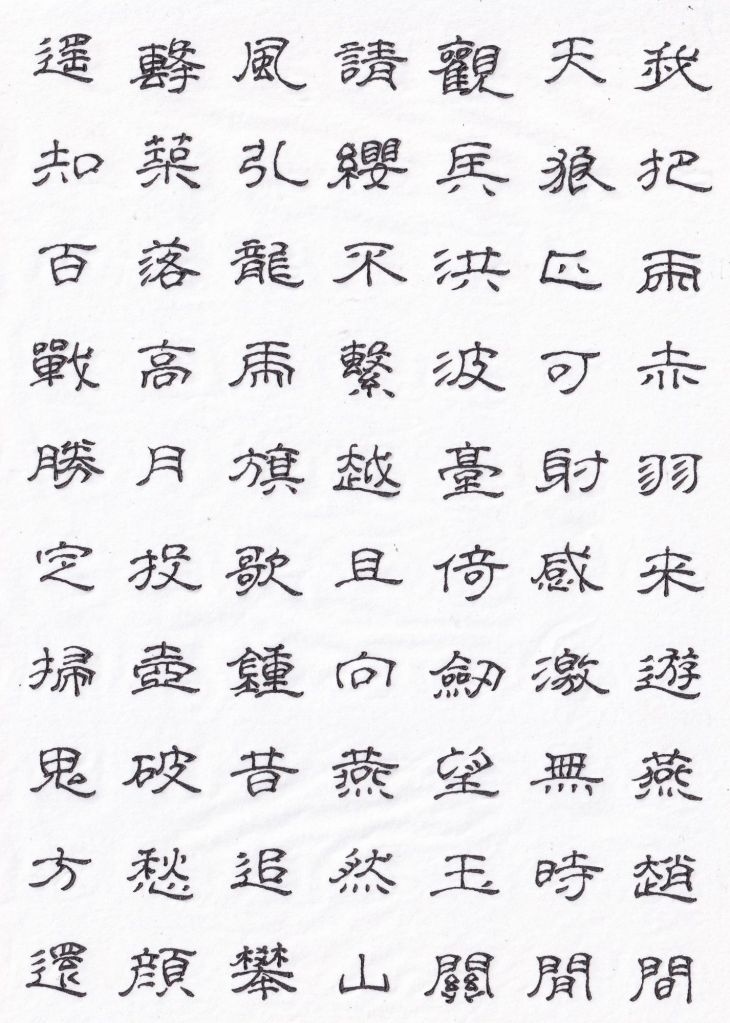 我把兩赤羽来遊燕趙間
天狼正可射感激無時閒
觀兵洪波臺倚劒望玉關
請纓不繫越且向燕然山
風引龍虎旗歌鍾昔追攀
擊築落高月投壺破愁顔
遥知百戰勝定掃鬼方還